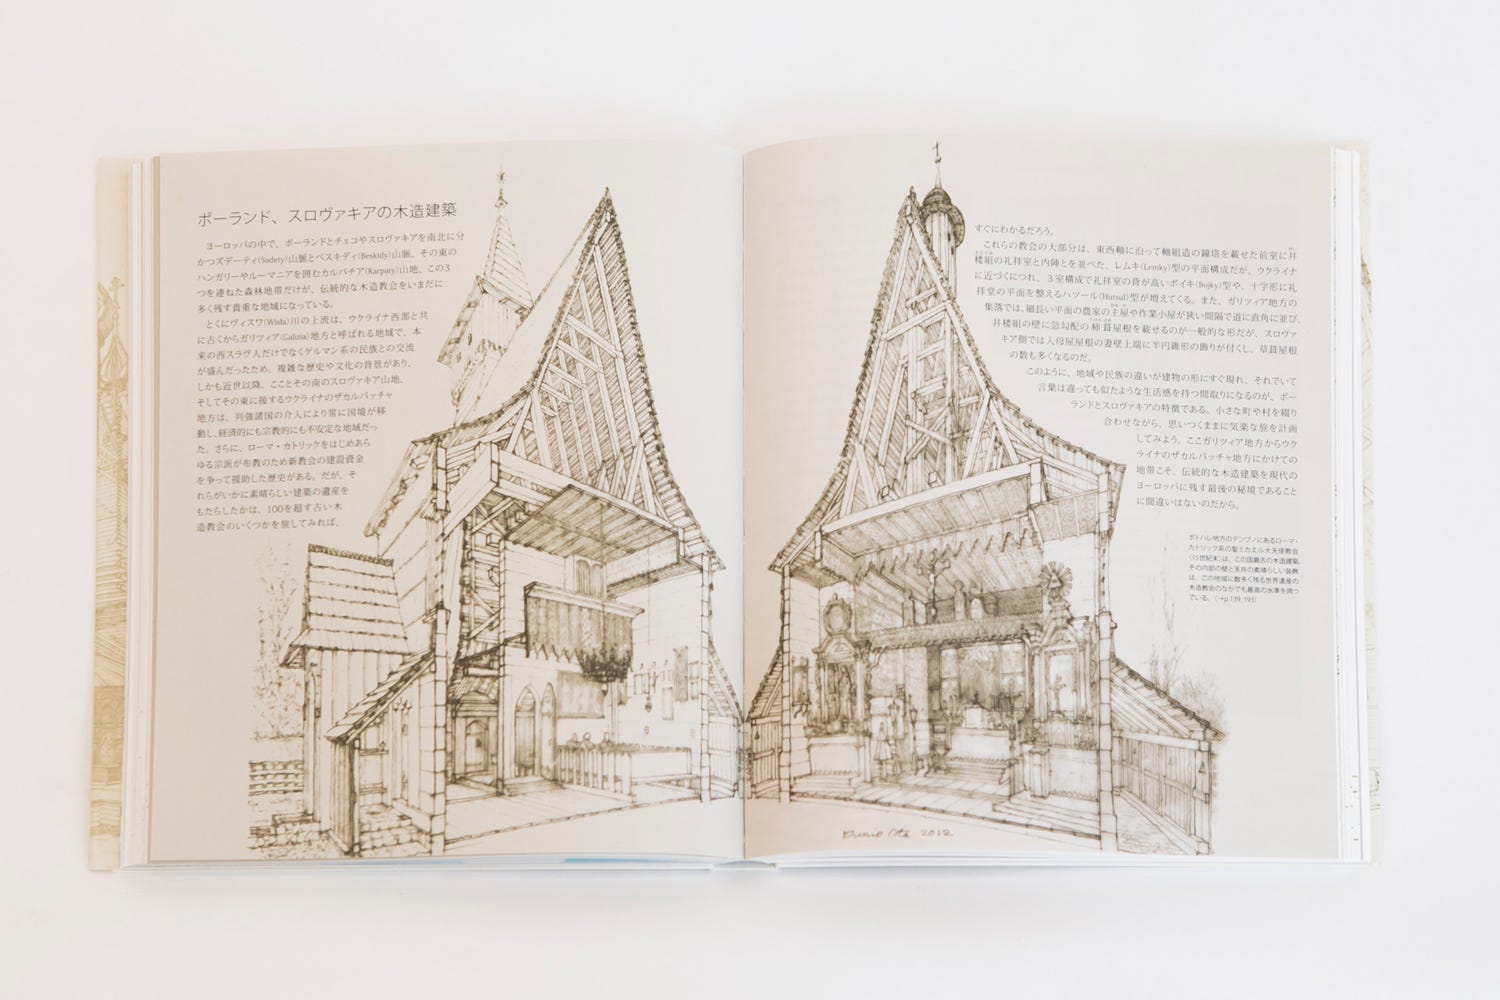 ポーランド、スロヴァキアの木造建築
ヨーロッパの中で、ポーランドとチェコやスロヴァキアを南北に分
かつズデーティ(Sudety)山脈とベスキディ(Beskidy)山脈、その東の
ハンガリーやルーマニアを囲むカルパチア(Karpaty)山地、この3
つを連ねた森林地帯だけが、伝統的な木造教会をいまだに
多く残す貴重な地域になっている。
とくにヴィスワ(Wisła)川の上流は、ウクライナ西部と共
に古くからガリツィア(Galizia)地方と呼ばれる地域で、本
来の西スラヴ人だけでなくゲルマン系の民族との交流
が盛んだったため、複雑な歴史や文化の背景があり、
しかも近世以降、ここその南のスロヴァキア山地、
そしてその東に接するウクライナのザカルパッチャ
地方は、列強諸国の介入により常に国境が移
動し、経済的にも宗教的にも不安定な地域だっ
た。さらに、ローマ・カトリックをはじめあら
ゆる宗派が布教のため新教会の建設資金
を争って援助した歴史がある。だが、そ
れらがいかに素晴らしい建築の遺産を
もたらしたかは、100を超す古い木
造教会のいくつかを旅してみれば、
すぐにわかるだろう。
これらの教会の大部分は、東西軸に沿って軸組造の鐘塔を載せた前室に井
楼組の礼拝室と内陣とを並べた、レムキ(Lemky)型の平面構成だが、ウクライナ
に近づくにつれ、3室構成で礼拝室の背が高いボイキ(Bojky)型や、十字形に礼
拝堂の平面を整えるハツール(Hutsul)型が増えてくる。また、ガリツィア地方の
集落では、細長い平面の農家の主屋や作業小屋が狭い間隔で道に直角に並び、
井楼組の壁に急勾配の杮葺屋根を載せるのが一般的な形だが、スロヴァ
キア側では入母屋屋根の妻壁上端に半円錐形の飾りが付くし、草葺屋根
の数も多くなるのだ。
このように、地域や民族の違いが建物の形にすぐ現れ、それでいて
言葉は違っても似たような生活感を持つ間取りになるのが、ポー
ランドとスロヴァキアの特徴である。小さな町や村を綴り
合わせながら、思いつくままに気楽な旅を計画
してみよう。ここガリツィア地方からウク
ライナのザカルパッチャ地方にかけての
地帯こそ、伝統的な木造建築を現代の
ヨーロッパに残す最後の秘境であること
に間違いはないのだから。
ポトハレ地方のデンブノにあるローマ・
カトリック系の聖ミカエル大天使教会
(15世紀末)は、この国最古の木造建築。
その内部の壁と天井の素晴らしい装飾
は、この地域に数多く残る世界遺産の
木造教会のなかでも最高の水準を誇っ
ている。(→p.139, 193)
Kunio Ota 2012